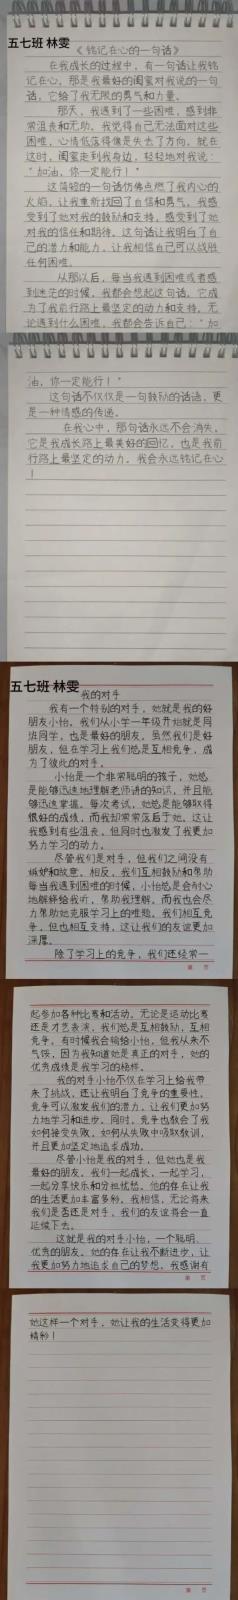 五七班 林雯
《铭记在心的一句话》
在我成长的过程中，有一句话让我铭
记在心。那是我最好的闺蜜对我说的一句
话，它给了我无限的勇气和力量。
那天，我遇到了一些困难，感到非
常沮丧和无助。我觉得自己无法面对这些
困难，心情低落得像是失去了方向。就在
这时，闺蜜走到我身边，轻轻地对我说：
“加油，你一定能行！”
这简短的一句话仿佛点燃了我内心的
火焰，让我重新找回了自信和勇气。我感
受到了她对我的鼓励和支持，感受到了她
对我的信任和期待。这句话让我明白了自
己的潜力和能力，让我相信自己可以战胜
任何困难。
从那以后，每当我遇到困难或者感
到迷茫的时候，我都会想起这句话。它成
为了我前行路上最坚定的动力和支持。无
论遇到什么困难，我都会告诉自己：“加
油，你一定能行！”
这句话不仅仅是一句鼓励的话语，更
是一种情感的传递。
在我心中，那句话永远不会消失。
它是我成长路上最美好的回忆，也是我前
行路上最坚定的动力。我会永远铭记在心
！
五七班 林雯
我的对手
我有一个特别的对手，她就是我的好
朋友小怡。我们从小学一年级开始就是同
班同学，也是最好的朋友。虽然我们是好
朋友，但在学习上我们总是互相竞争，成
为了彼此的对手。
小怡是一个非常聪明的孩子，她总
是能够迅速地理解老师讲的知识，并且能
够迅速掌握。每次考试，她总是能够取得
很好的成绩，而我却常常落后于她。这让
我感到有些沮丧，但同时也激发了我更加
努力学习的动力。
尽管我们是对手，但我们之间没有
嫉妒和敌意。相反，我们互相鼓励和帮助
每当我遇到困难的时候，小怡总是会耐心
地解释给我听，帮助我理解。而我也会尽
力帮助她克服学习上的难题。我们相互竞
争，但也相互支持，这让我们的友谊更加
深厚。
除了学习上的竞争，我们还经常一
起参加各种比赛和活动。无论是运动比赛
还是才艺表演，我们总是互相鼓励，互相
竞争。有时候我会输给小怡，但我从来不
气馁，因为我知道她是真正的对手，她的
优秀成绩是我学习的榜样。
我的对手小怡不仅在学习上给我带
来了挑战，还让我明白了竞争的重要性。
竞争可以激发我们的潜力，让我们更加努
力地学习和进步。同时，竞争也教会了我
如何接受失败，如何从失败中吸取教训，
并且更加坚定地追求成功。
尽管小怡是我的对手，但她也是我
最好的朋友。我们一起成长，一起学习，
一起分享快乐和分担忧愁。她的存在让我
的生活更加丰富多彩。我相信，无论将来
我们是否还是对手，我们的友谊将会一直
延续下去。
这就是我的对手小怡，一个聪明、
优秀的朋友。她的存在让我不断进步，让
我更加努力地追求自己的梦想。我感谢有
她这样一个对手，她让我的生活变得更加
精彩！